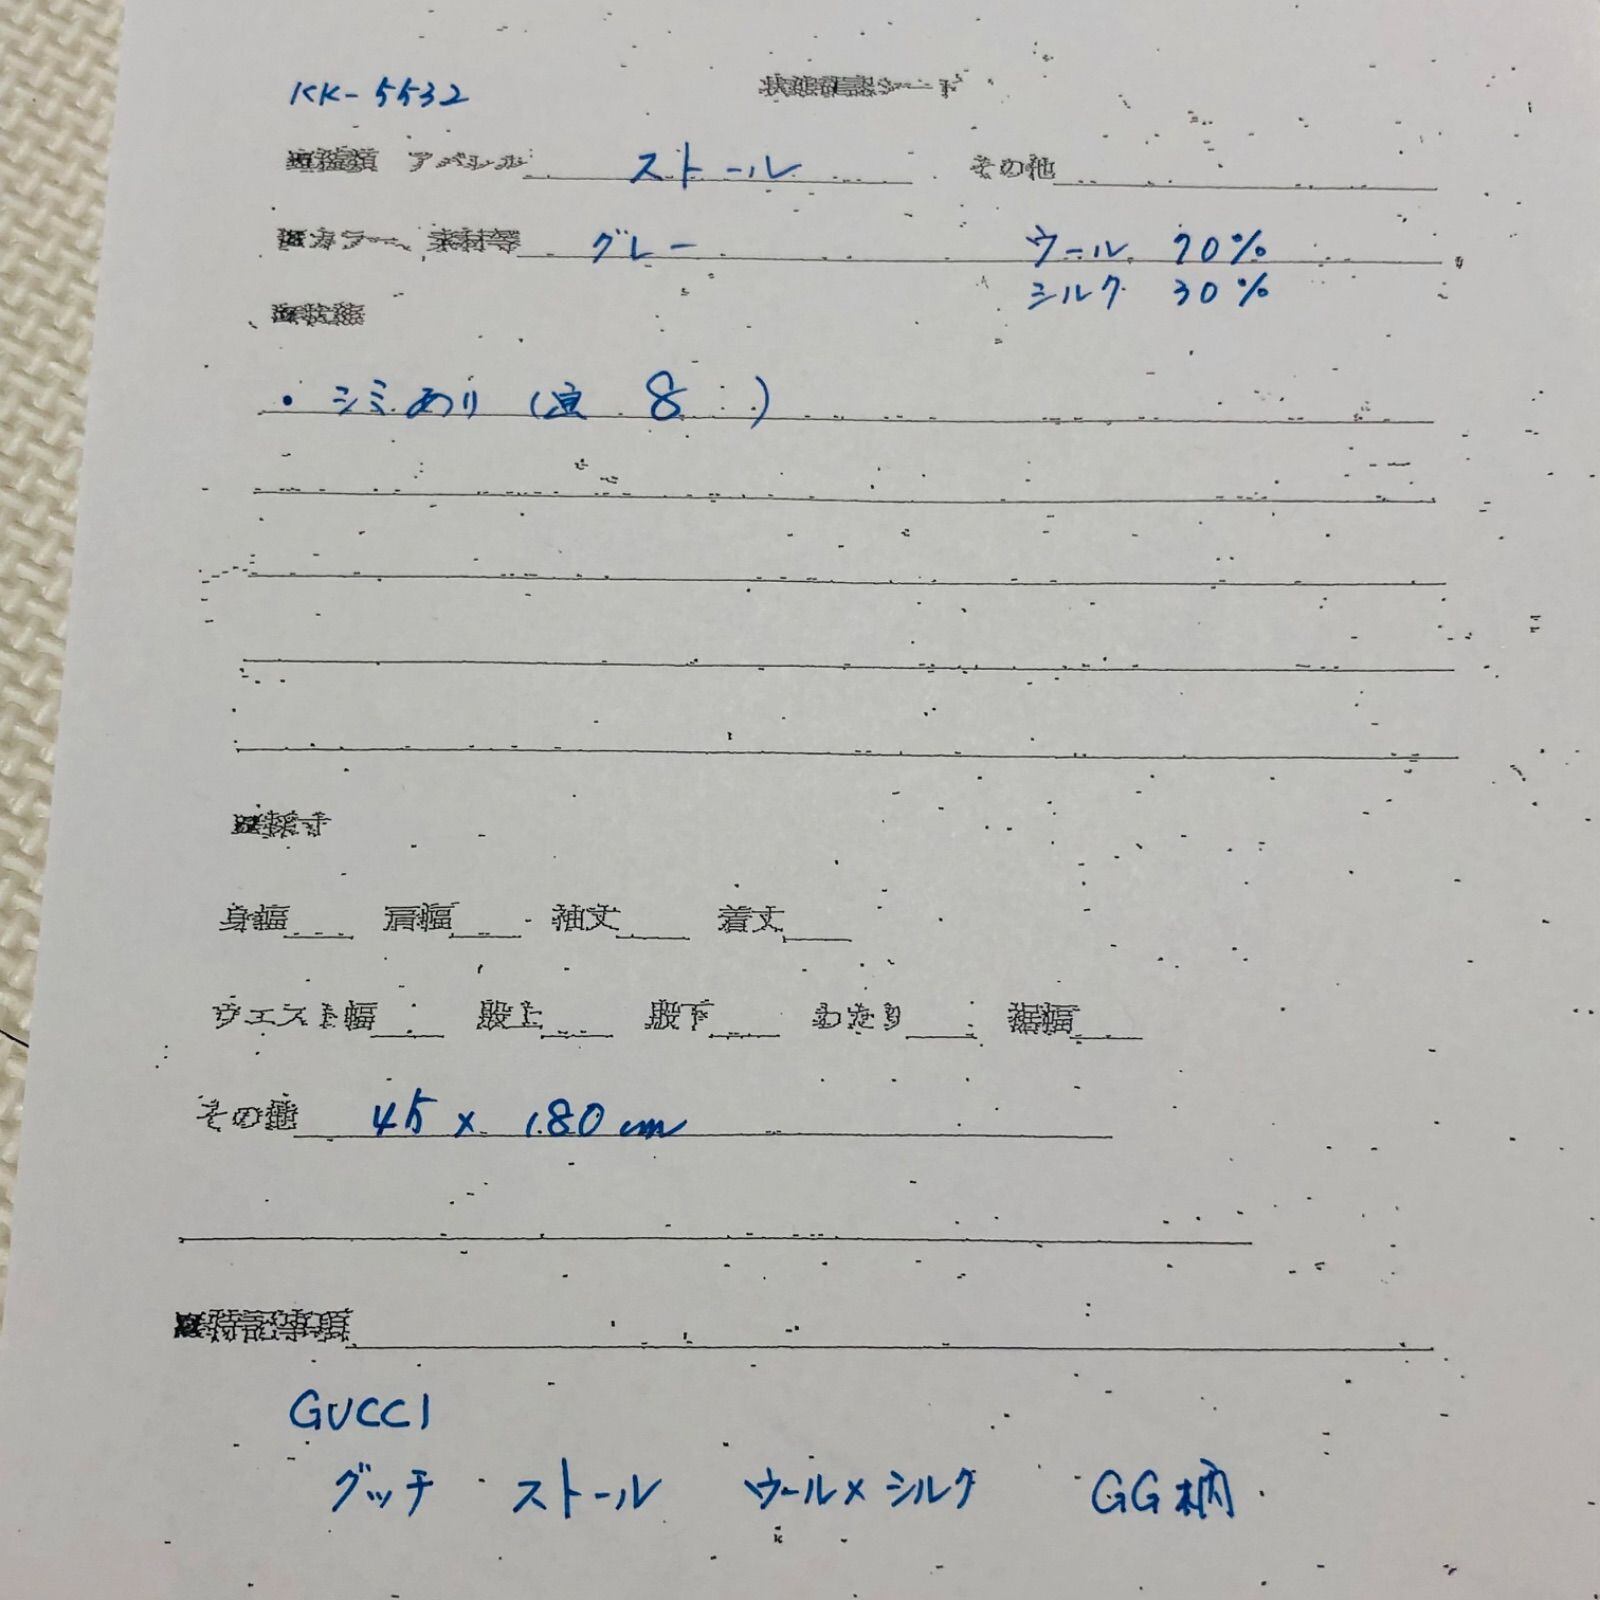 KK-5532 状態確認シート
■種類 アパレル ストール その他
■カラー、素材等 グレー ウール 70%
シルク 30%
■状態
・シミあり (直 8 )
■採寸
身幅 肩幅 袖丈 着丈
ウエスト幅 股上 股下 わたり 裾幅
その他 45 × 180 cm
■特記事項
GUCCI
グッチ ストール ウール×シルク GG柄